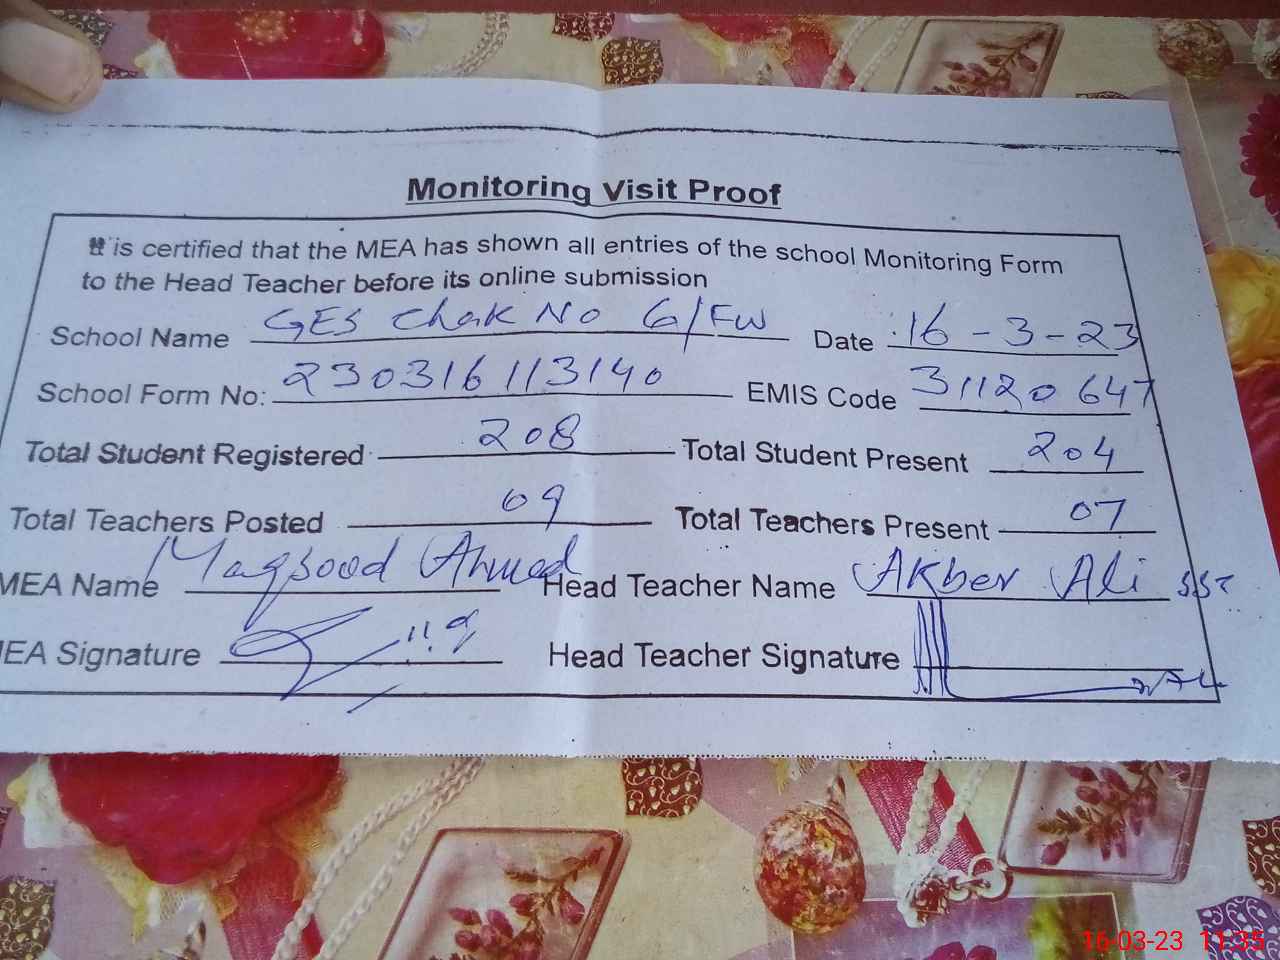 Monitoring Visit Proof
It is certified that the MEA has shown all entries of the school Monitoring Form
to the Head Teacher before its online submission
School Name GES Chak No 6/FW Date 16-3-23
School Form No: 230316113140 EMIS Code 31120647
Total Student Registered 208 Total Student Present 204
Total Teachers Posted 09 Total Teachers Present 07
MEA Name Maqsood Ahmed Head Teacher Name Akber Ali SST
MEA Signature Head Teacher Signature
16-03-23 11:35